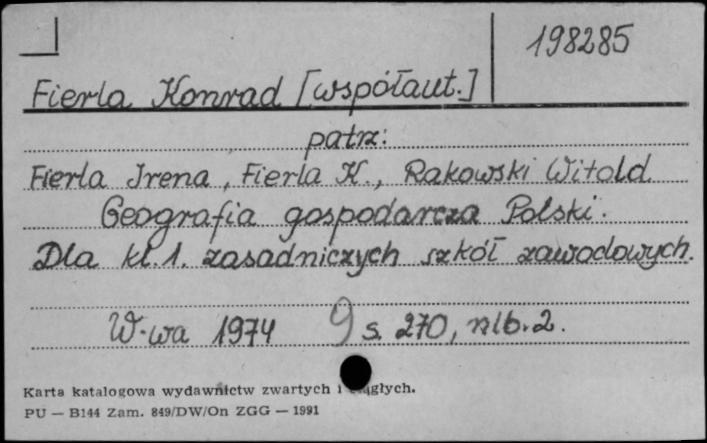 198285
Fierla Konrad [współaut.]
patrz:
Fierla Irena, Fierla K., Rakowski Witold
Geografia gospodarcza Polski.
Dla kl. 1. zasadniczych szkół zawodowych.
W-wa 1974 s. 270, nlb. 2.
Karta katalogowa wydawnictw zwartych i ciągłych.
PU — B144 Zam. 849/DW/On ZGG — 1991